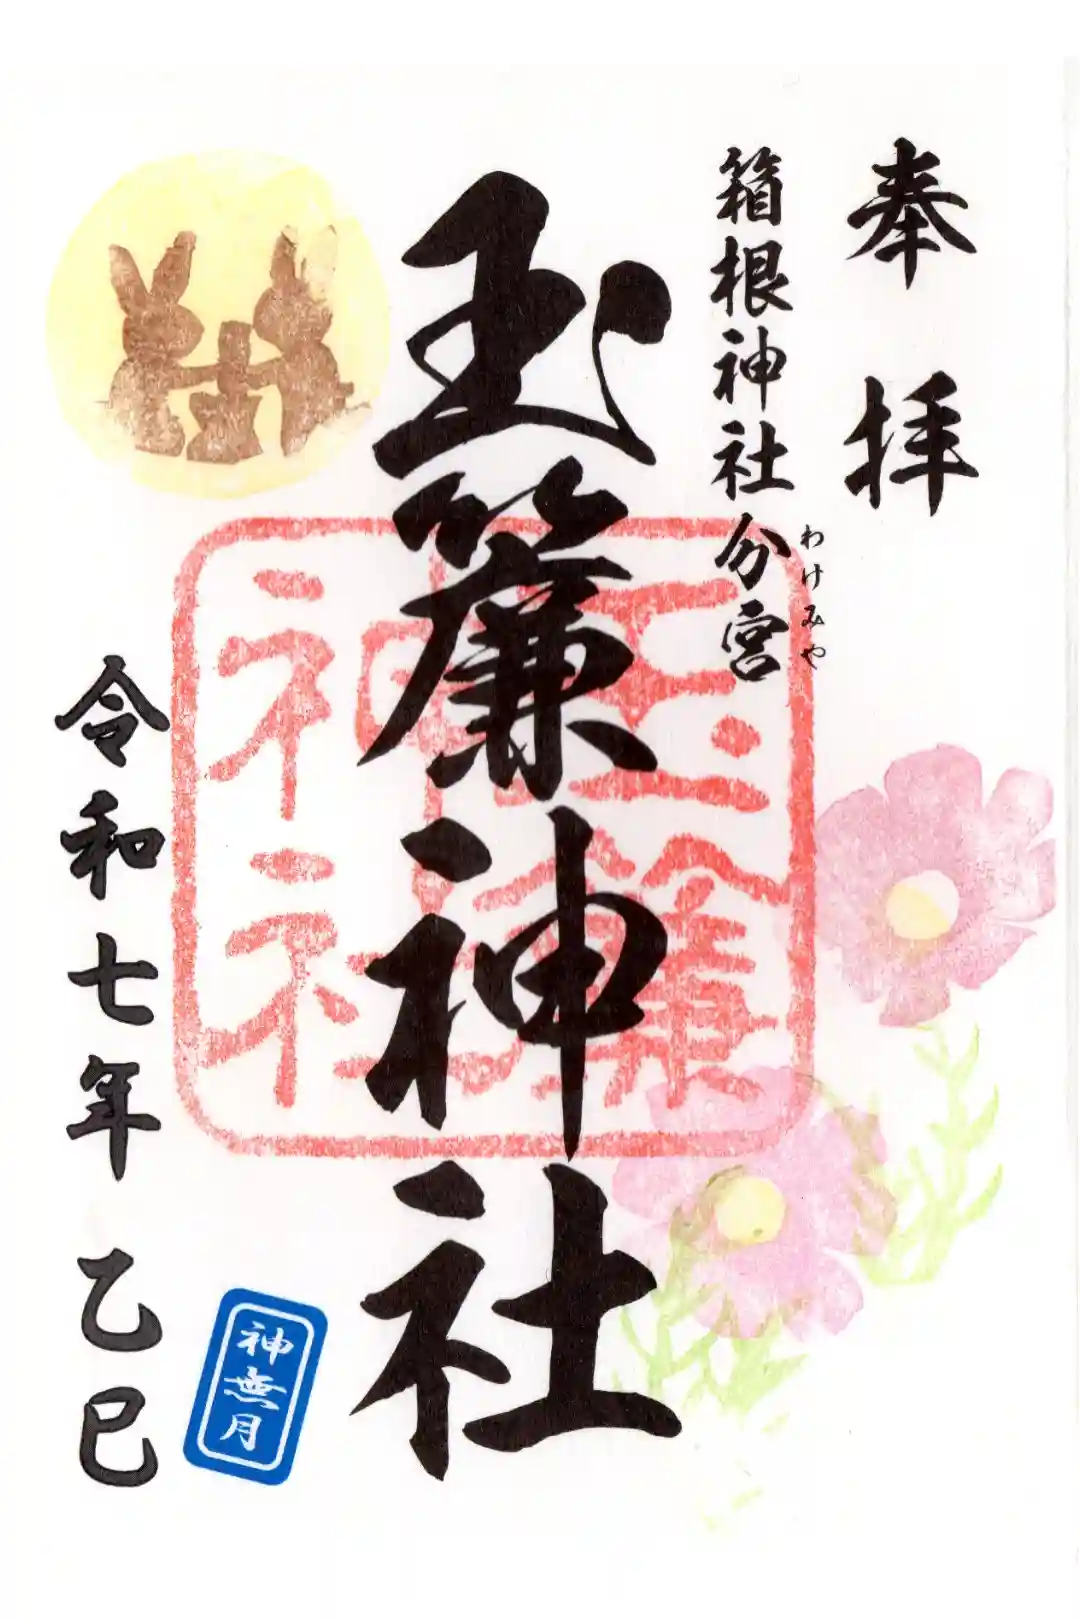 奉拝
箱根神社分宮
わけみや
玉簾神社
玉簾神社
令和七年 乙巳
神無月